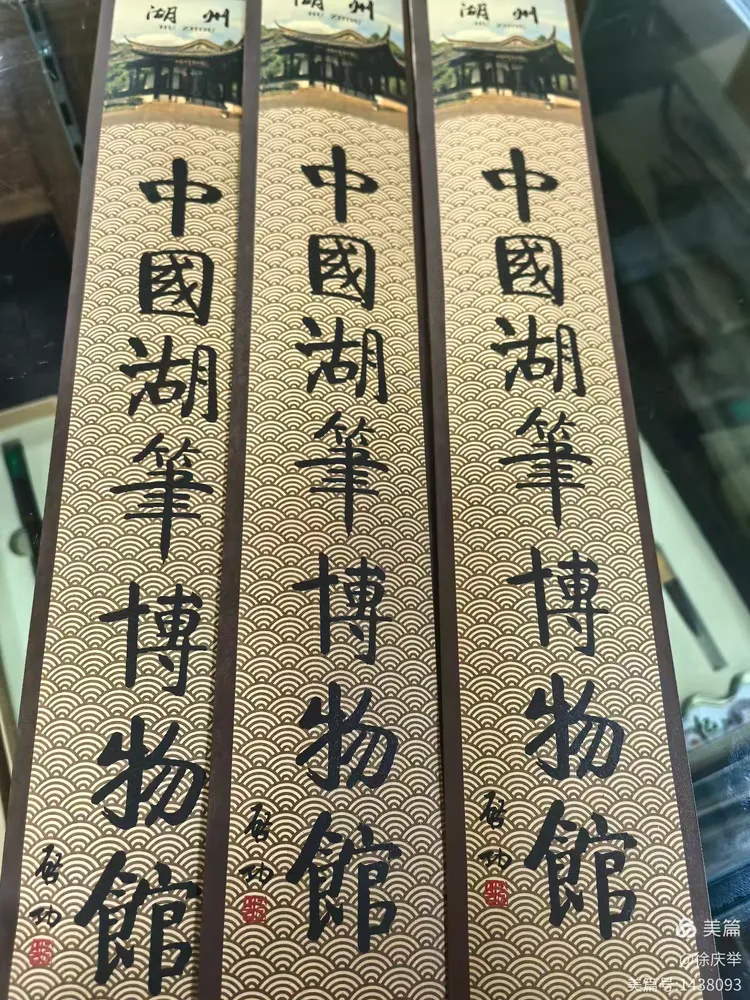 湖州
HU ZHOU
中國湖筆博物館
啓功
湖州
HU ZHOU
中國湖筆博物館
啓功
湖州
HU ZHOU
中國湖筆博物館
啓功
美篇
@徐庆举
美篇号:1438093